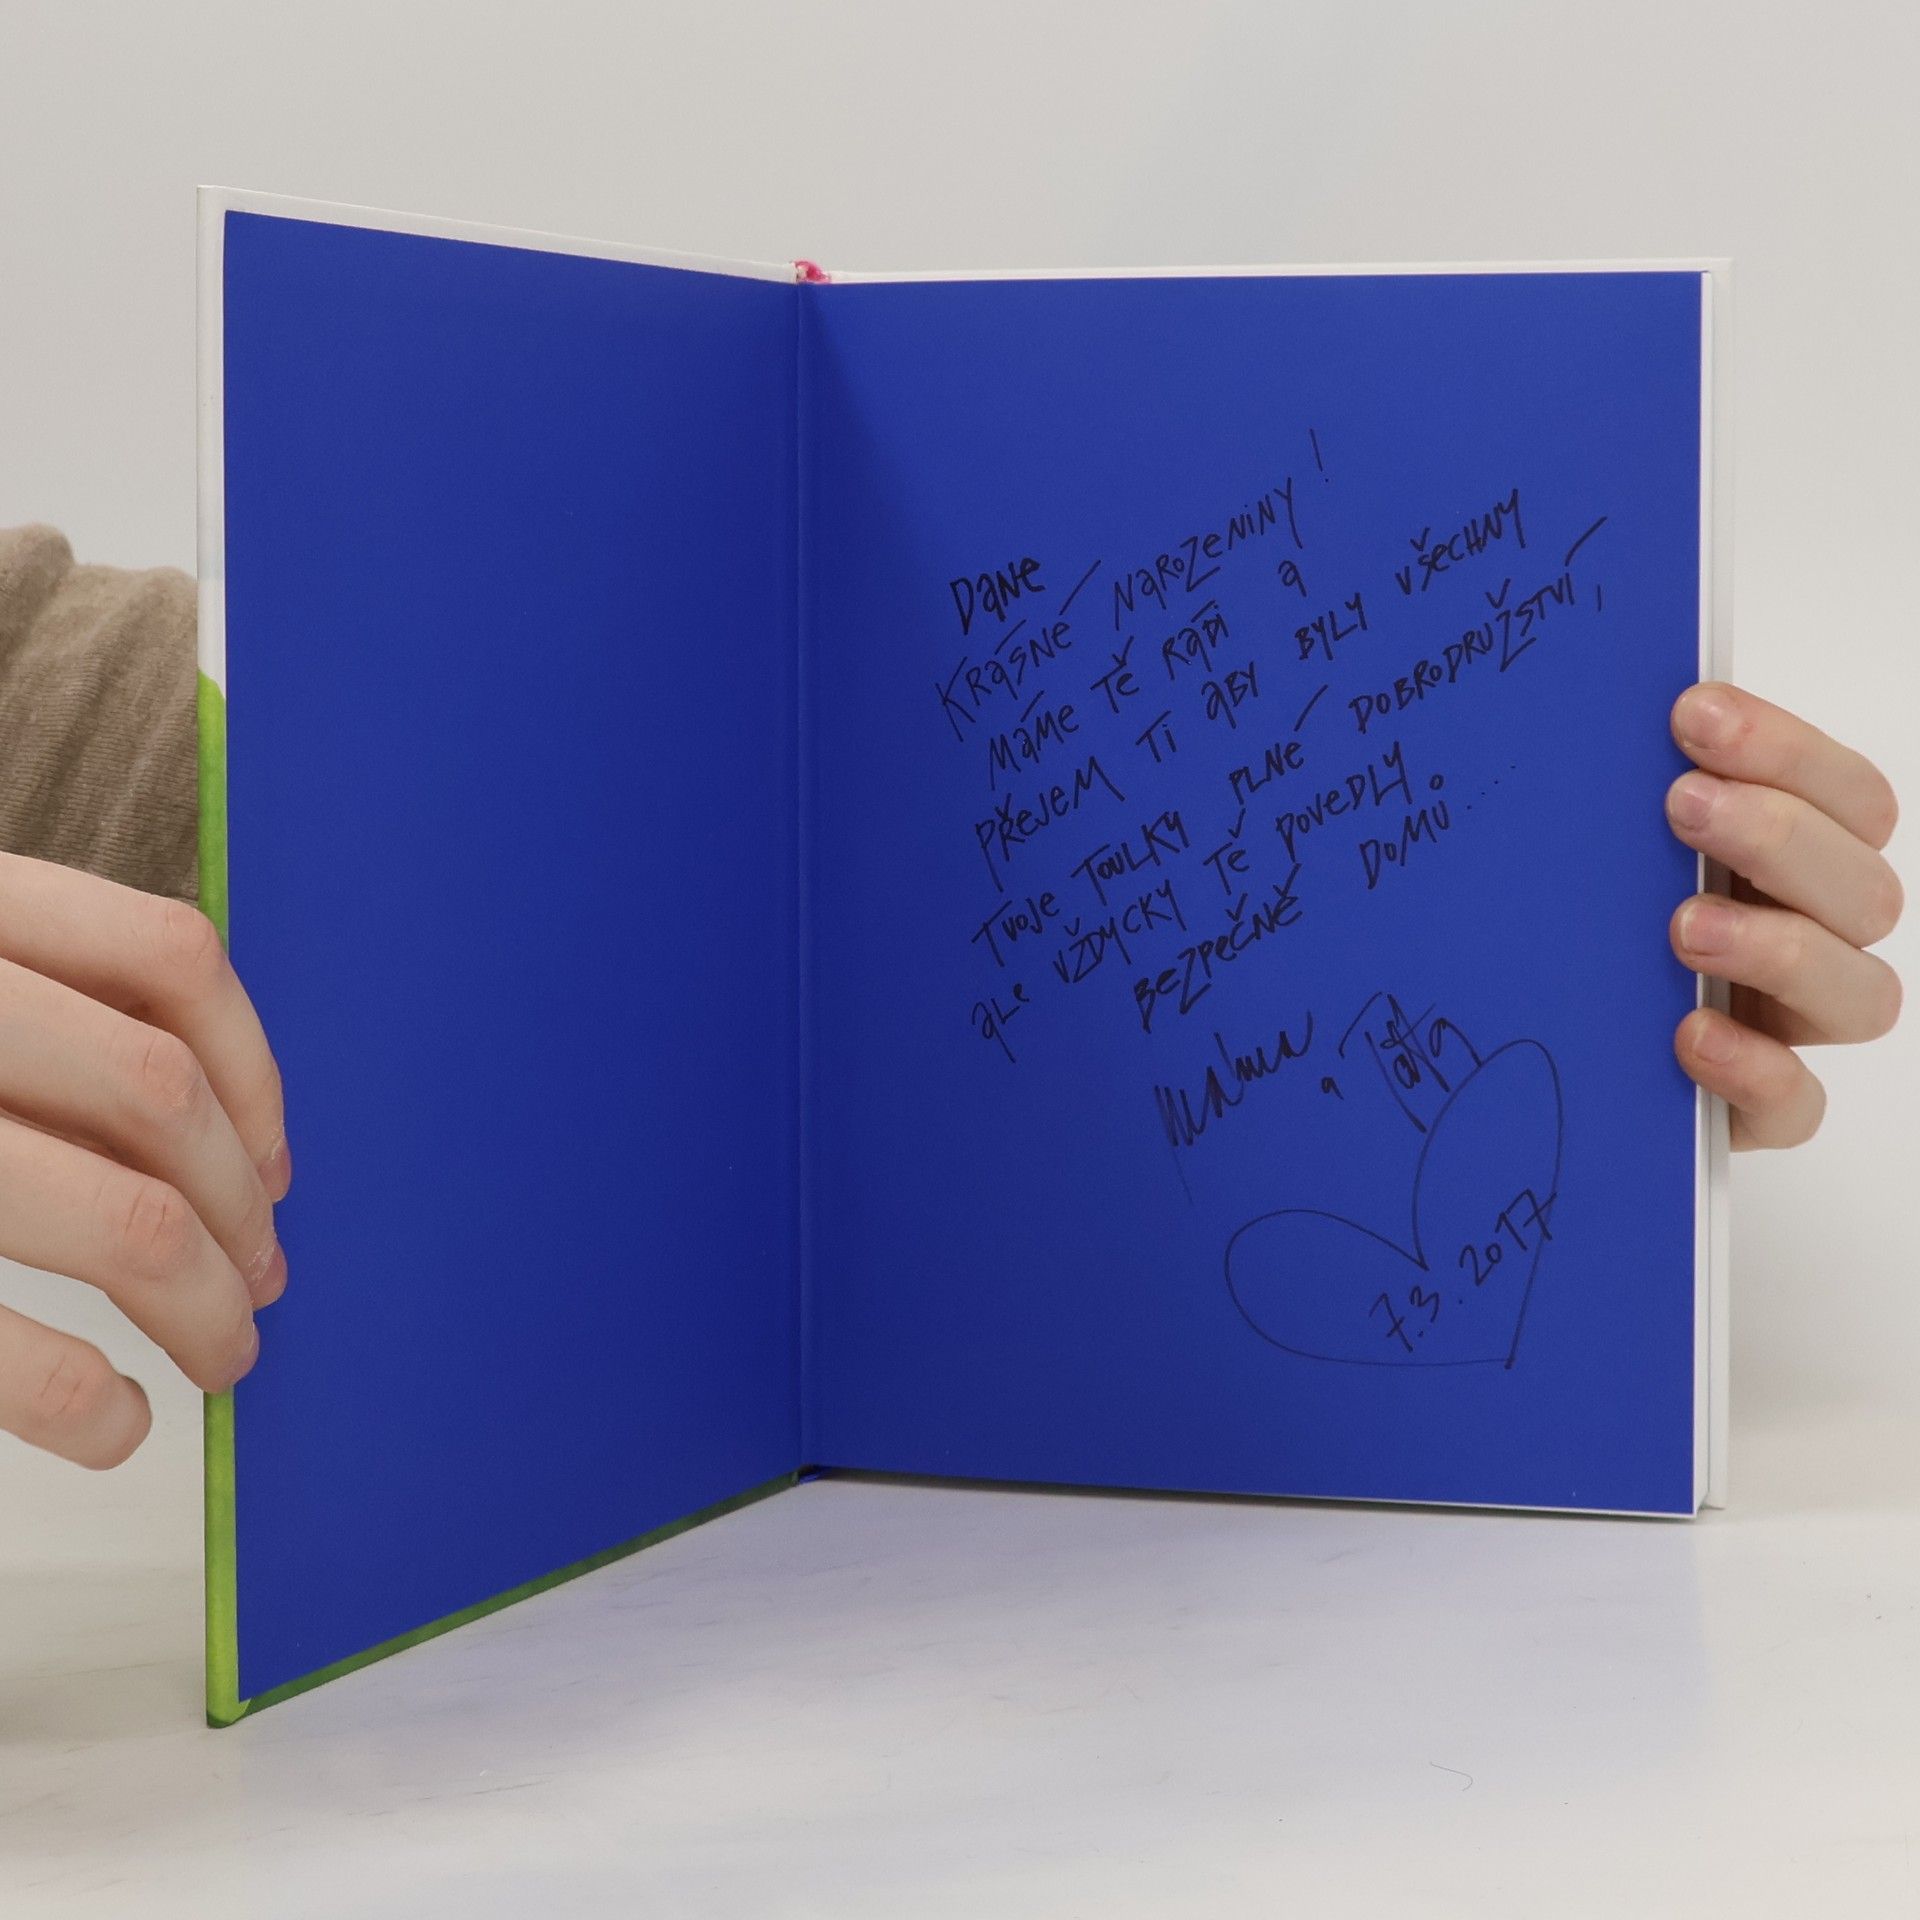 DANE
KRÁSNÉ NAROZENINY!
MÁME TĚ RÁDI A
PŘEJEM TI ABY BYLY VŠECHNY
TVOJE TOULKY PLNÉ DOBRODRUŽSTVÍ,
ALE VŽDYCKY TĚ DOVEDLY
BEZPEČNĚ DOMŮ....
Máma a Táta
7.3.2017